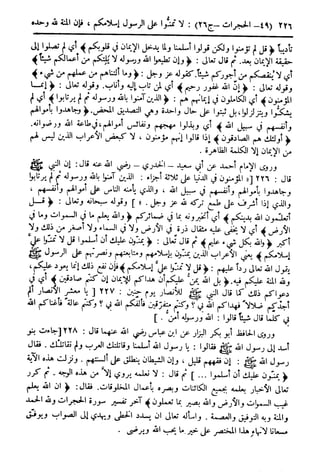 ٢٢٦ (٤٩- الحجرات - ج٢٦): لا تمنوا على الرسول إسلامكم ، فإن المنة لله وحده
تأديبا ﴿ قل لم تؤمنوا ولكن قولوا أسلمنا ولما يدخل الإيمان في قلوبكم ﴾ أي لم تصلوا إلى
حقيقة الإيمان بعد. ثم قال تعالى : ﴿ وإن تطيعوا الله ورسوله لا يلتكم من أعمالكم شيئا ﴾
أي لا ينقصكم من أجوركم شيئا. كقوله عز وجل : ﴿ وما ألتناهم من عملهم من شيء ﴾
وقوله تعالى : ﴿ إن الله غفور رحيم ﴾ أي لمن تاب إليه وأناب. وقوله تعالى : ﴿ إنما
المؤمنون ﴾ أي الكاملون في إيمانهم هم : ﴿ الذين آمنوا بالله ورسوله ثم لم يرتابوا ﴾ أي لم
يشكوا ويتزلزلوا، بل ثبتوا على حال واحدة وهي التصديق المحض. ﴿ وجاهدوا بأموالهم
وأنفسهم في سبيل الله ﴾ أي وبذلوا مهجهم ونفائس أموالهم ، في طاعة الله ورضوانه.
﴿ أولئك هم الصادقون ﴾ إذا قالوا إنهم مؤمنون ، لا كبعض الأعراب الذين ليس لهم
من الإيمان إلا الكلمة الظاهرة .
وروى الإمام أحمد عن أبي سعيد - الخدري - رضي الله عنه قال : إن النبي ﷺ
قال : ٢٢٦ [ «المؤمنون في الدنيا على ثلاثة أجزاء : الذين آمنوا بالله ورسوله ثم لم يرتابوا
وجاهدوا بأموالهم وأنفسهم في سبيل الله ، والذي يأمنه الناس على أموالهم وأنفسهم ،
والذي إذا أشرف على طمع تركه لله عز وجل . » ] وقوله سبحانه وتعالى : ﴿ قل
أتعلمون الله بدينكم ﴾ أي أتخبرونه بما في ضمائركم ﴿ والله يعلم ما في السموات وما في
الأرض ﴾ أي لا يخفى عليه مثقال ذرة في الأرض ولا في السماء ولا أصغر من ذلك ولا
أكبر ﴿ والله بكل شيء عليم ﴾ ثم قال تعالى : ﴿ يمنون عليك أن أسلموا قل لا تمنوا علي
إسلامكم ﴾ يعني الأعراب الذين يمنون بإسلامهم ومتابعتهم ونصرتهم على الرسول ﷺ
يقول الله تعالى ردا عليهم : ﴿ قل لا تمنوا علي إسلامكم ﴾ فإن نفع ذلك إنما يعود عليكم،
ولله المنة عليكم فيه. ﴿ بل الله يمن عليكم أن هداكم للإيمان إن كنتم صادقين ﴾ أي في
دعواكم ذلك كما قال النبي ﷺ للأنصار يوم حنين : ٢٢٧ [ يا معشر الأنصار ألم
أجدكم ضلالا فهداكم الله بي ؟ وكنتم متفرقين فألفكم الله بي ؟ وكنتم عالة فأغناكم الله
بي كلما قال شيئا قالوا : الله ورسوله أمن . ]
وروى الحافظ أبو بكر البزار عن ابن عباس رضي الله عنهما قال : ٢٢٨ [ جاءت بنو
أسد إلى رسول الله ﷺ فقالوا : يا رسول الله أسلمنا وقاتلتك العرب ولم نقاتلك . فقال
رسول الله ﷺ : إن فقههم قليل ، وإن الشيطان ينطق على ألسنتهم . ونزلت هذه الآية
﴿ يمنون عليك أن أسلموا ... ] ثم قال : لا نعلمه يروى إلا من هذا الوجه. ثم كرر
تعالى الأخبار بعلمه بجميع الكائنات وبصره بأعمال المخلوقات. فقال: ﴿ إن الله يعلم
غيب السموات والأرض والله بصير بما تعملون ﴾ آخر تفسير سورة الحجرات ولله الحمد
والمنة وبه التوفيق والعصمة . وأسأله تعالى أن يسدد الخطى ويهدي إلى الصواب ويوفق
مسعانا لإتمام هذا المختصر على خير ما يحب الله ويرضى .